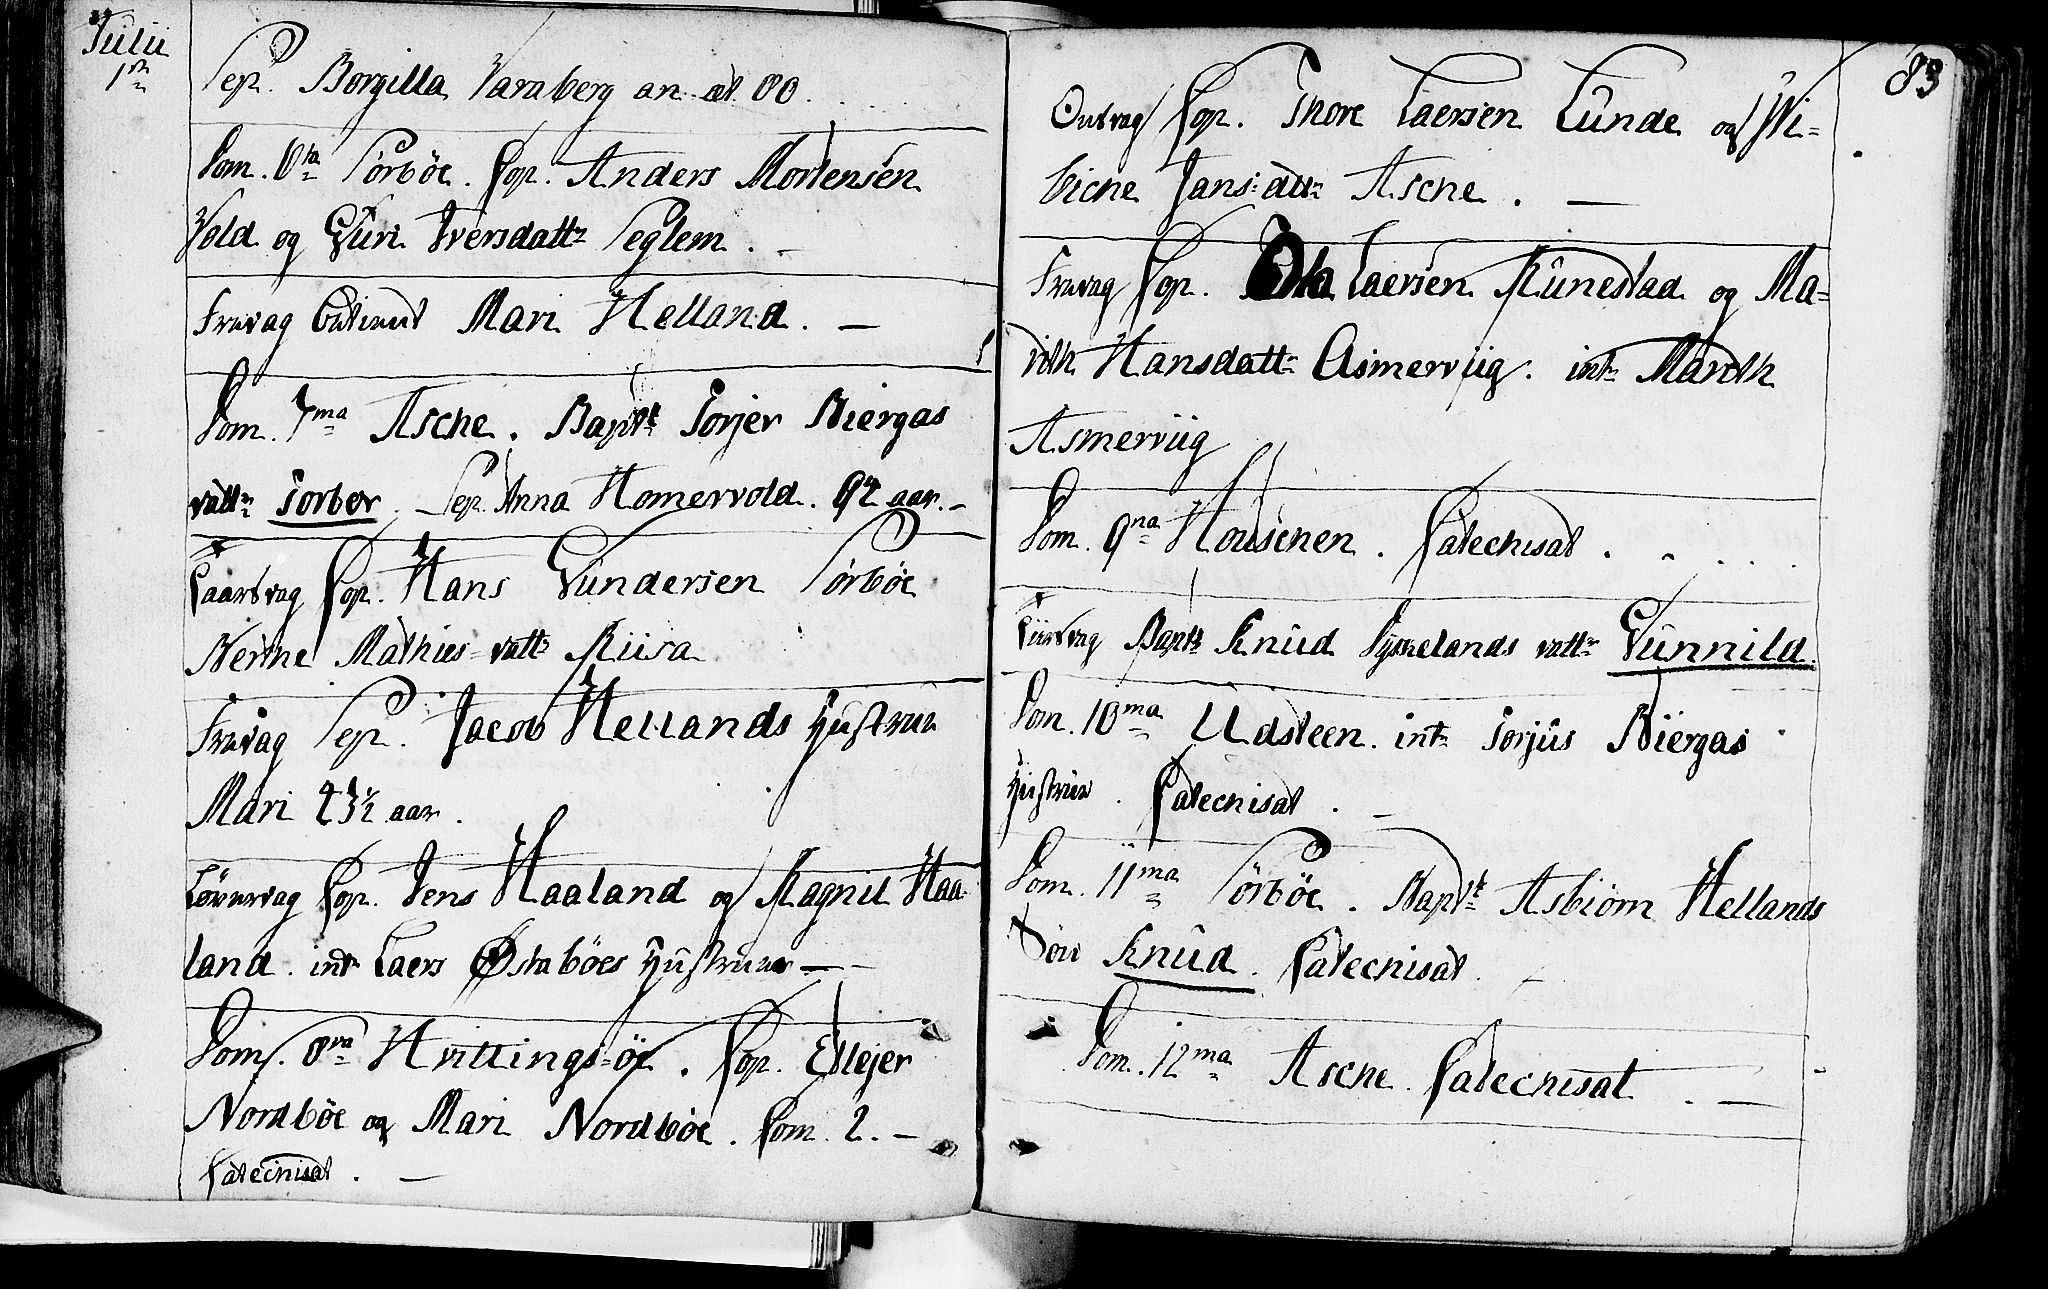 Julii
1ste
Sep. Borgilla Varaberg an. æt. 80.
Dom. 6ta Sörböe. Cop. Anders Mortensen
Vold og Guri Iversdattr Seglem.
Fredag Mari Helland.
Dom. 7ma Asche. Bapt: Torjer Biergas
dattr Torbor. Sep. Anna Homervold. 92 aar.
Cop. Hans Gundersen Sörböe
Mathies dattr Riisa
Fredag Sep. Jacob Hellands Hustrue
Mari 43½ aar.
Löverdag Cop. Jens Haaland og Ragnil Haa-
land. int. Laers Østaböes Hustrue
Dom. 8va Hvittings-öe. Cop. Ellejer
Nordböe og Mari Nordböe. Com. 2.
Catechisat.
83
Onsdag Cop. Thore Laersen Lunde og Wi=
biche Jans: dttr Asche.
Fredag Cop. Ola Laersen Runestad og Ma=
rith Hansdattr Asmerviig. intr Marith
Asmerviig
Dom. 9na Houschen. Catechisat.
Bapt: Knud dattr Gunnild.
Dom. 10ma Udsteen. intr Torjus Biergas
Hustrue. Catechisat.
Dom. 11ma Sörböe. Bapt: Asbiörn Hellands
Sön Knud. Catechisat.
Dom. 12ma Asche. Catechisat.